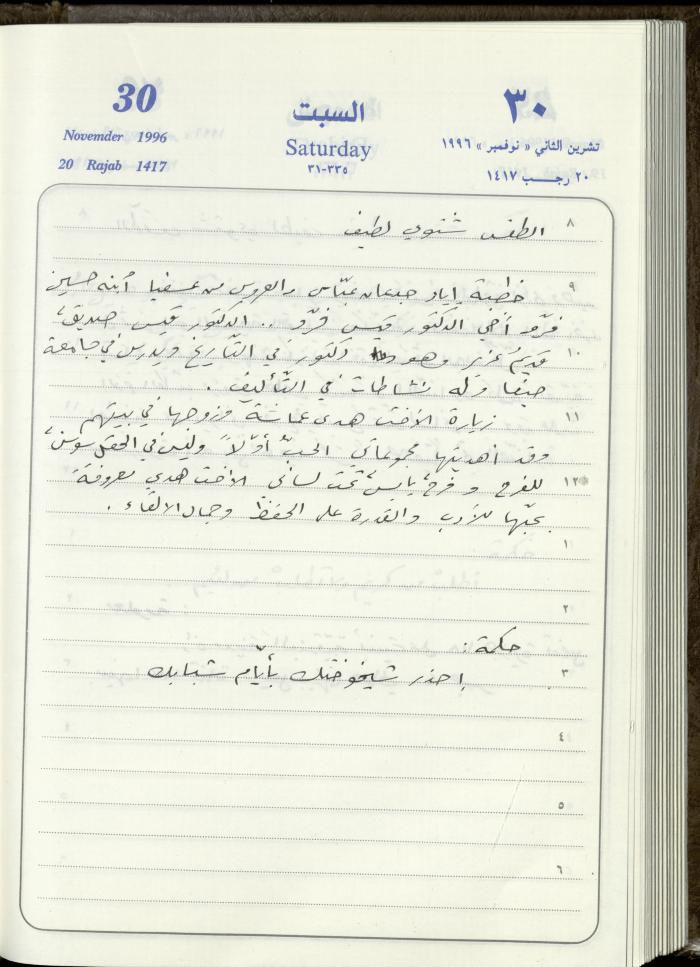 30
Novemder 1996
20 Rajab 1417
السبت
Saturday
٣١-٣٣٥
٣٠
تشرين الثاني « نوفمبر » ١٩٩٦
٢٠ رجـــب ١٤١٧
٨ الطقس شتوي لطيف
٩ خطبة إياد جدعان عبّاس والعروس من عسفيا ابنة حسين
فرّو أخي الدكتور قيس فرّو .. الدكتور قيس صديق
١٠ قديم عزيز وهو دكتور في التّاريخ ويدرس في جامعة
حيفا وله نشاطات في التّأليف .
١١ زيارة الأخت هدى وزوجها في بيتهم
وقد أهديتها مجموعاتي الحبّ أوّلاً وليس في الحقل سوسن
١٢ للفرح و تحت لساني الأخت هدى معروفة
بحبّها للأدب والقدرة على الحفظ وجمال الالقاء .
١
٢
حكمة :
٣ إحذر شيخوختك بأيّام شبابك
٤
٥
٦